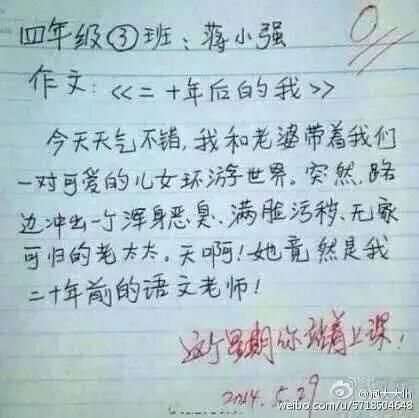 四年级③班:蒋小强
0
作文:《二十年后的我》
今天天气不错,我和老婆带着我们
一对可爱的儿女环游世界。突然,路
边冲出一个浑身恶臭、满脸污秽、无家
可归的老太太。天啊!她竟然是我
二十年前的语文老师!
这个星期你站着上课!
2014.5.29
weibo.com/u/5718504648